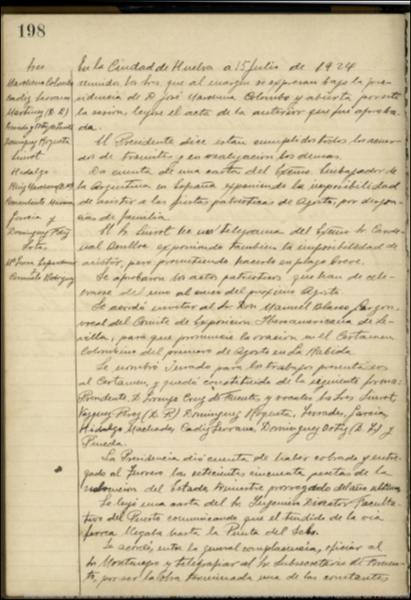 198
Sres
Marchena Colombo
Cadiz Serrano
Martinez (D. R)
Dominguez Roqueta
Siurot
Hidalgo
Garcia y
Dominguez
En la Ciudad de Huelva a 15 Julio de 1924
reunidos los Sres que al margen se expresan bajo la pre
sidencia de D José Marchena Colombo y abierta por este
la sesion, leyose el acta de la anterior que fue aproba
da.
El Presidente dice estan cumplidos todos los acuer
dos de tramites y en realizacion los demas.
Da cuenta de una carta del Exmo Embajador de
la Argentina en España exponiendo la imposibilidad
de asistir a las fiestas patrioticas de Agosto, por desgra
cias de familia.
El Sr Siurot lee un telegrama del Exmo Sr Car
denal exponiendo tambien la imposibilidad de
asistir, pero prometiendo hacerlo en plazo breve.
Se aprobaron los actos patrioticos que han de cele
brarse del uno al cinco del proximo Agosto.
Se acordó invitar al Sr Don Manuel Blasco Garzon,
vocal del Comité de Exposicion Iberoamericana de Se
villa, para que pronuncie la oracion en el Certamen
Colombino del primero de Agosto en La Rabida.
Se nombró Jurado para los trabajos presentados
al Certamen, y quedó constituida de la siguiente forma:
Presidente D. Lorenzo Cruz de Fuentes, y vocales los Sres Siurot,
Vazquez Perez (D. R) Dominguez Roqueta, Terrades, Garcia,
Hidalgo Machado, Cadiz Serrano, Dominguez Ortiz (D. L) y
Pineda.
La Presidencia dió cuenta de haber cobrado y entre
gado al Tesorero las setecientas cincuenta pesetas de la
subvencion del Estado, trimestre prorrogado del año ultimo.
Se leyó una carta del Sr Ingeniero Director Faculta
tivo del Puerto comunicando que el tendido de la via
ferrea llegaba hasta la Punta del Sebo.
Se acordó, entre la general complacencia, oficiar al
Sr Montenegro y telegrafiar al Sr Subsecretario de Fomen
to, por ser la obra terminada una de las constantes